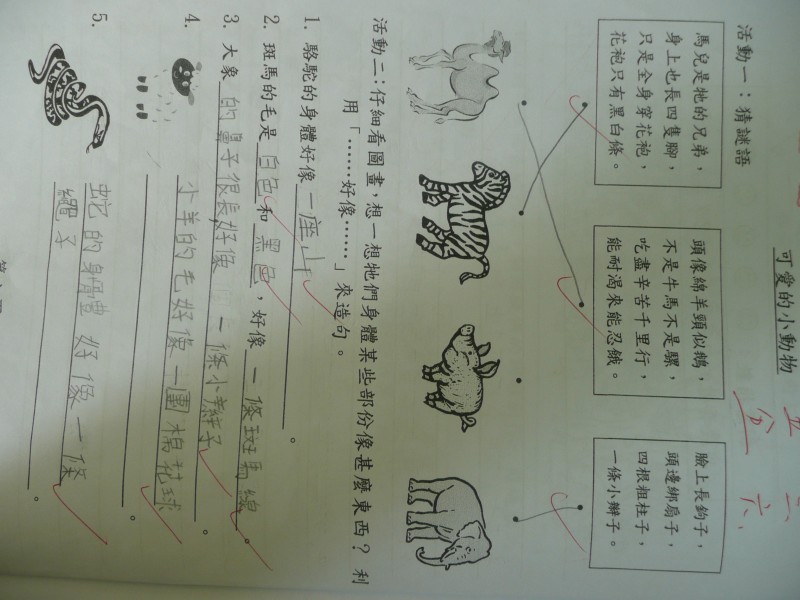 可愛的小動物
活動一：猜謎語
馬兒是牠的兄弟，
身上也長四隻腳，
只是全身穿花袍，
花袍只有黑白條。
頭像綿羊頸似鵝，
不是牛馬不是騾，
吃盡辛苦千里行，
能耐渴來能忍餓。
臉上長鉤子，
頭邊綁扇子，
四根粗柱子，
一條小辮子。
活動二：仔細看圖畫，想一想牠們身體某些部份像甚麼東西？利
用「……好像……」來造句。
1. 駱駝的身體好像一座山。
2. 斑馬的毛是白色和黑色，好像一條斑馬線。
3. 大象的鼻子很長好像一條小辮子。
4. 小羊的毛好像一團棉花球。
5. 蛇的身體好像一條
繩子。